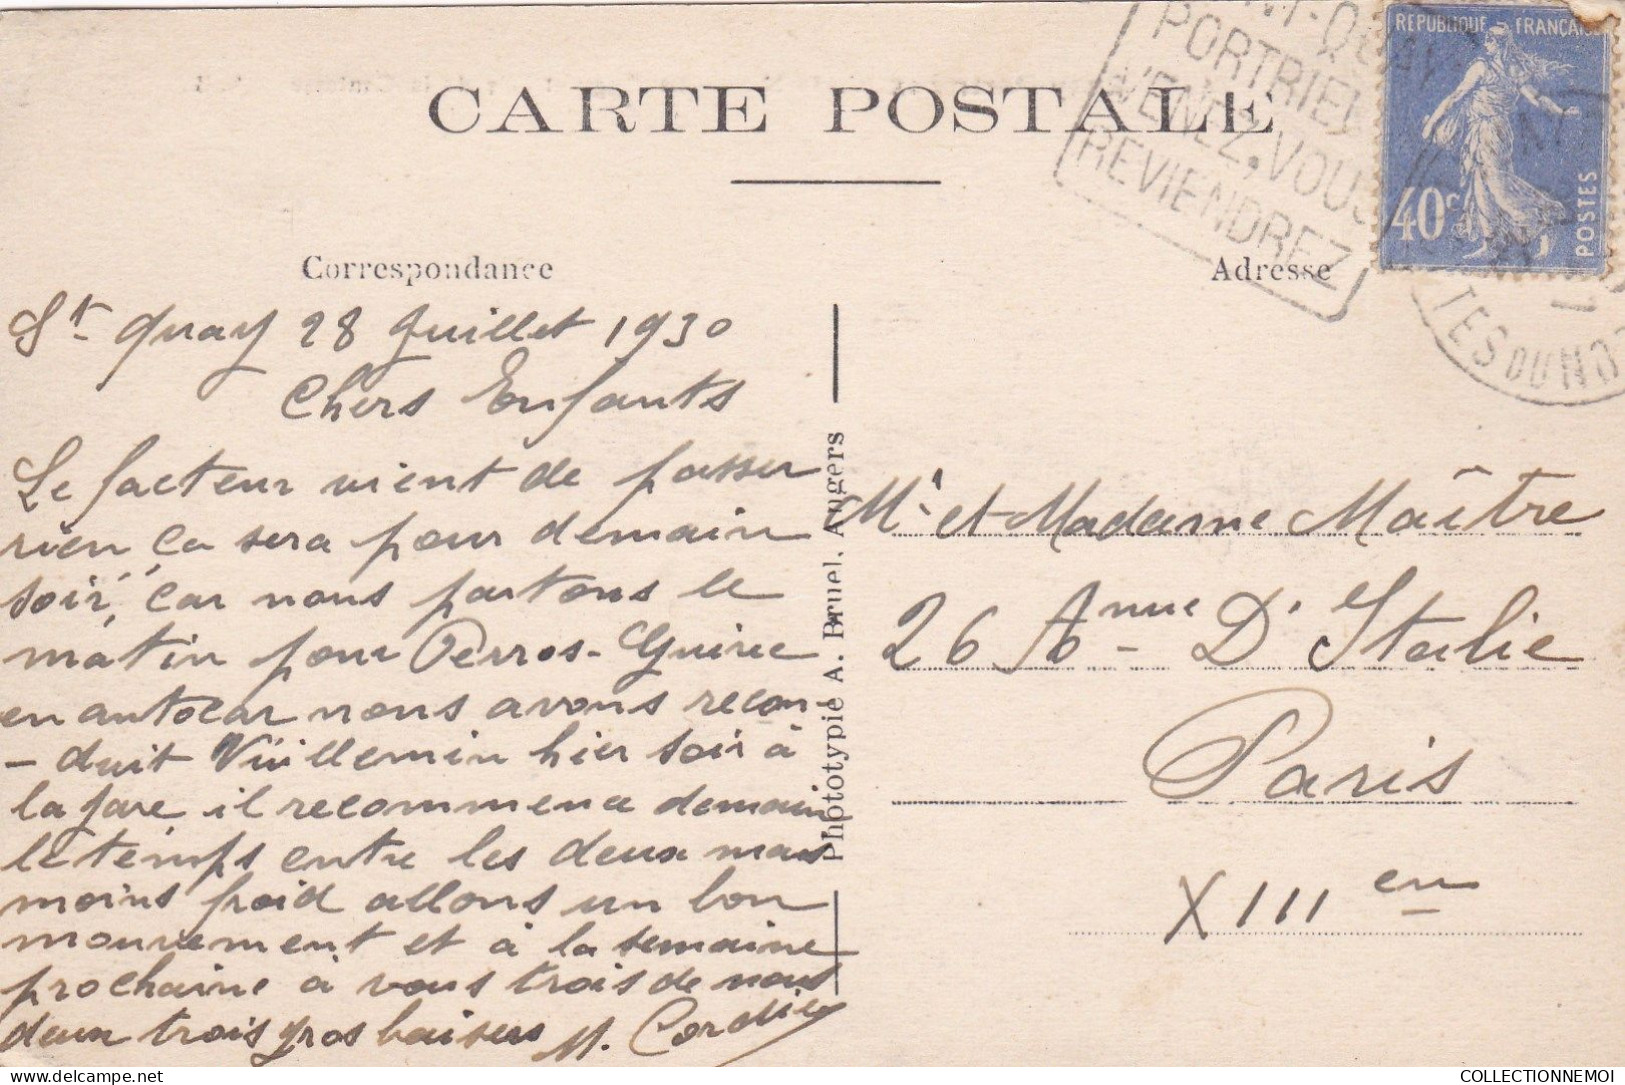 CARTE POSTALE
PORTRIEUX
VENEZ, VOUS
REVIENDREZ
REPUBLIQUE FRANÇAISE
40c
POSTES
TES DU NO
Correspondance
Adresse
St. Quay 28 Juillet 1930
Chers Enfants
Le facteur vient de passer
rien, ça sera pour demain
soir, car nous partons le
matin pour Perros-Guirec
en autocar nous avons recon
- duit Vuillemin hier soir à
la gare il recommence demain
le temps entre les deux mais
moins froid allons un bon
mouvement et à la semaine
prochaine à vous trois de nous
deux trois gros baisers M. Cordier
Phototypie A. Bruel, Angers
Mr et Madame Maître
26 Anue - D'Italie
Paris
XIII en
COLLECTIONNEMOI